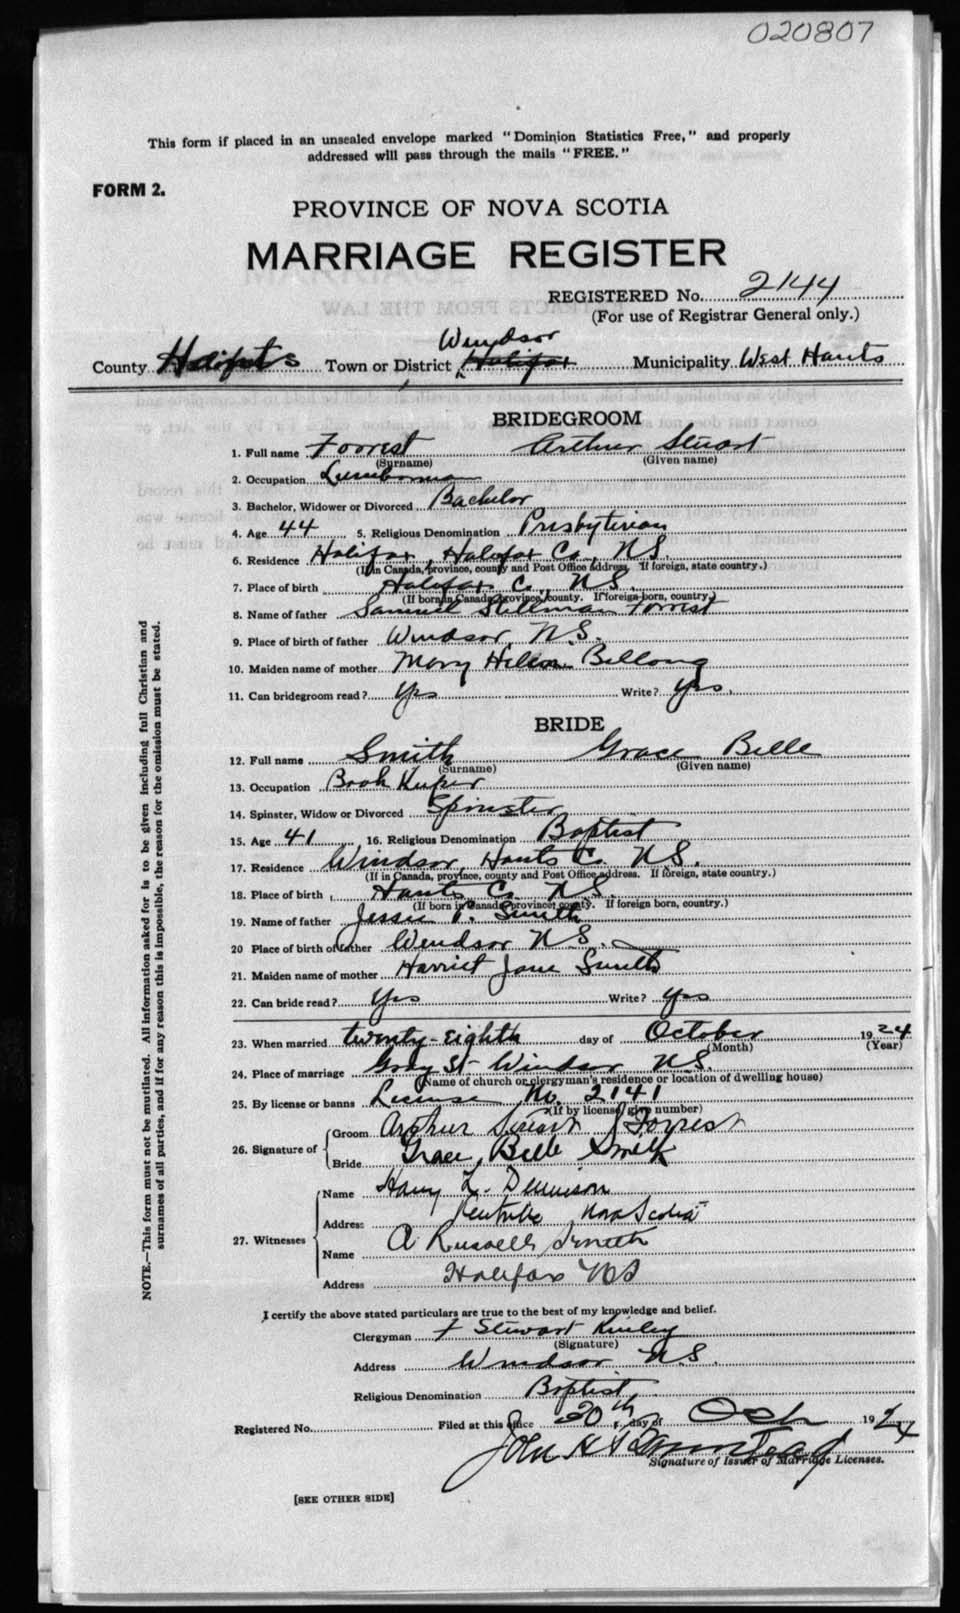 020807
This form if placed in an unsealed envelope marked "Dominion Statistics Free," and properly
addressed will pass through the mails "FREE."
FORM 2.
PROVINCE OF NOVA SCOTIA
MARRIAGE REGISTER
REGISTERED No. 2144
(For use of Registrar General only.)
Windsor
County Hants Town or District Halifax Municipality West Hants
BRIDEGROOM
1. Full name Forrest Arthur Stuart
(Surname) (Given name)
2. Occupation Lumberman
3. Bachelor, Widower or Divorced Bachelor
4. Age 44 5. Religious Denomination Presbyterian
6. Residence Halifax, Halifax Co., N.S.
(If in Canada, province, county and Post Office address. If foreign, state country.)
7. Place of birth Halifax Co., N.S.
(If born in Canada, province, county. If foreign born, country.)
8. Name of father Samuel Stillman Forrest
9. Place of birth of father Windsor, N.S.
10. Maiden name of mother Mary Helen
11. Can bridegroom read? Yes Write? Yes.
BRIDE
12. Full name Smith Grace Belle
(Surname) (Given name)
13. Occupation Book Keeper
14. Spinster, Widow or Divorced Spinster
15. Age 41 16. Religious Denomination Baptist
17. Residence Windsor, Hants Co. N.S.
(If in Canada, province, county and Post Office address. If foreign, state country.)
18. Place of birth Hants Co. N.S.
(If born in Canada, province, county. If foreign born, country.)
19. Name of father Jessie P. Smith
20 Place of birth of father Windsor N.S.
21. Maiden name of mother Harriet Jane Smith
22. Can bride read? Yes Write? Yes
23. When married twenty-eighth day of October 1924
(Month) (Year)
24. Place of marriage Gray St Windsor N.S.
(Name of church or clergyman's residence or location of dwelling house)
25. By license or banns License No. 2141
(If by license, give number)
26. Signature of
Groom Arthur Stuart Forrest
Bride Grace Belle Smith
27. Witnesses
Name Harry L. Dennison
Address Kentville Nova Scotia
Name A Russell Smith
Address Halifax NS
I certify the above stated particulars are true to the best of my knowledge and belief.
Clergyman F Stewart Kinley
(Signature)
Address Windsor N.S.
Religious Denomination Baptist
Registered No. Filed at this office 30th day of Oct 1924
John H
Signature of Issuer of Marriage Licenses.
[SEE OTHER SIDE]
NOTE.—This form must not be mutilated. All information asked for is to be given including full Christian and
surnames of all parties, and if for any reason this is impossible, the reason for the omission must be stated.